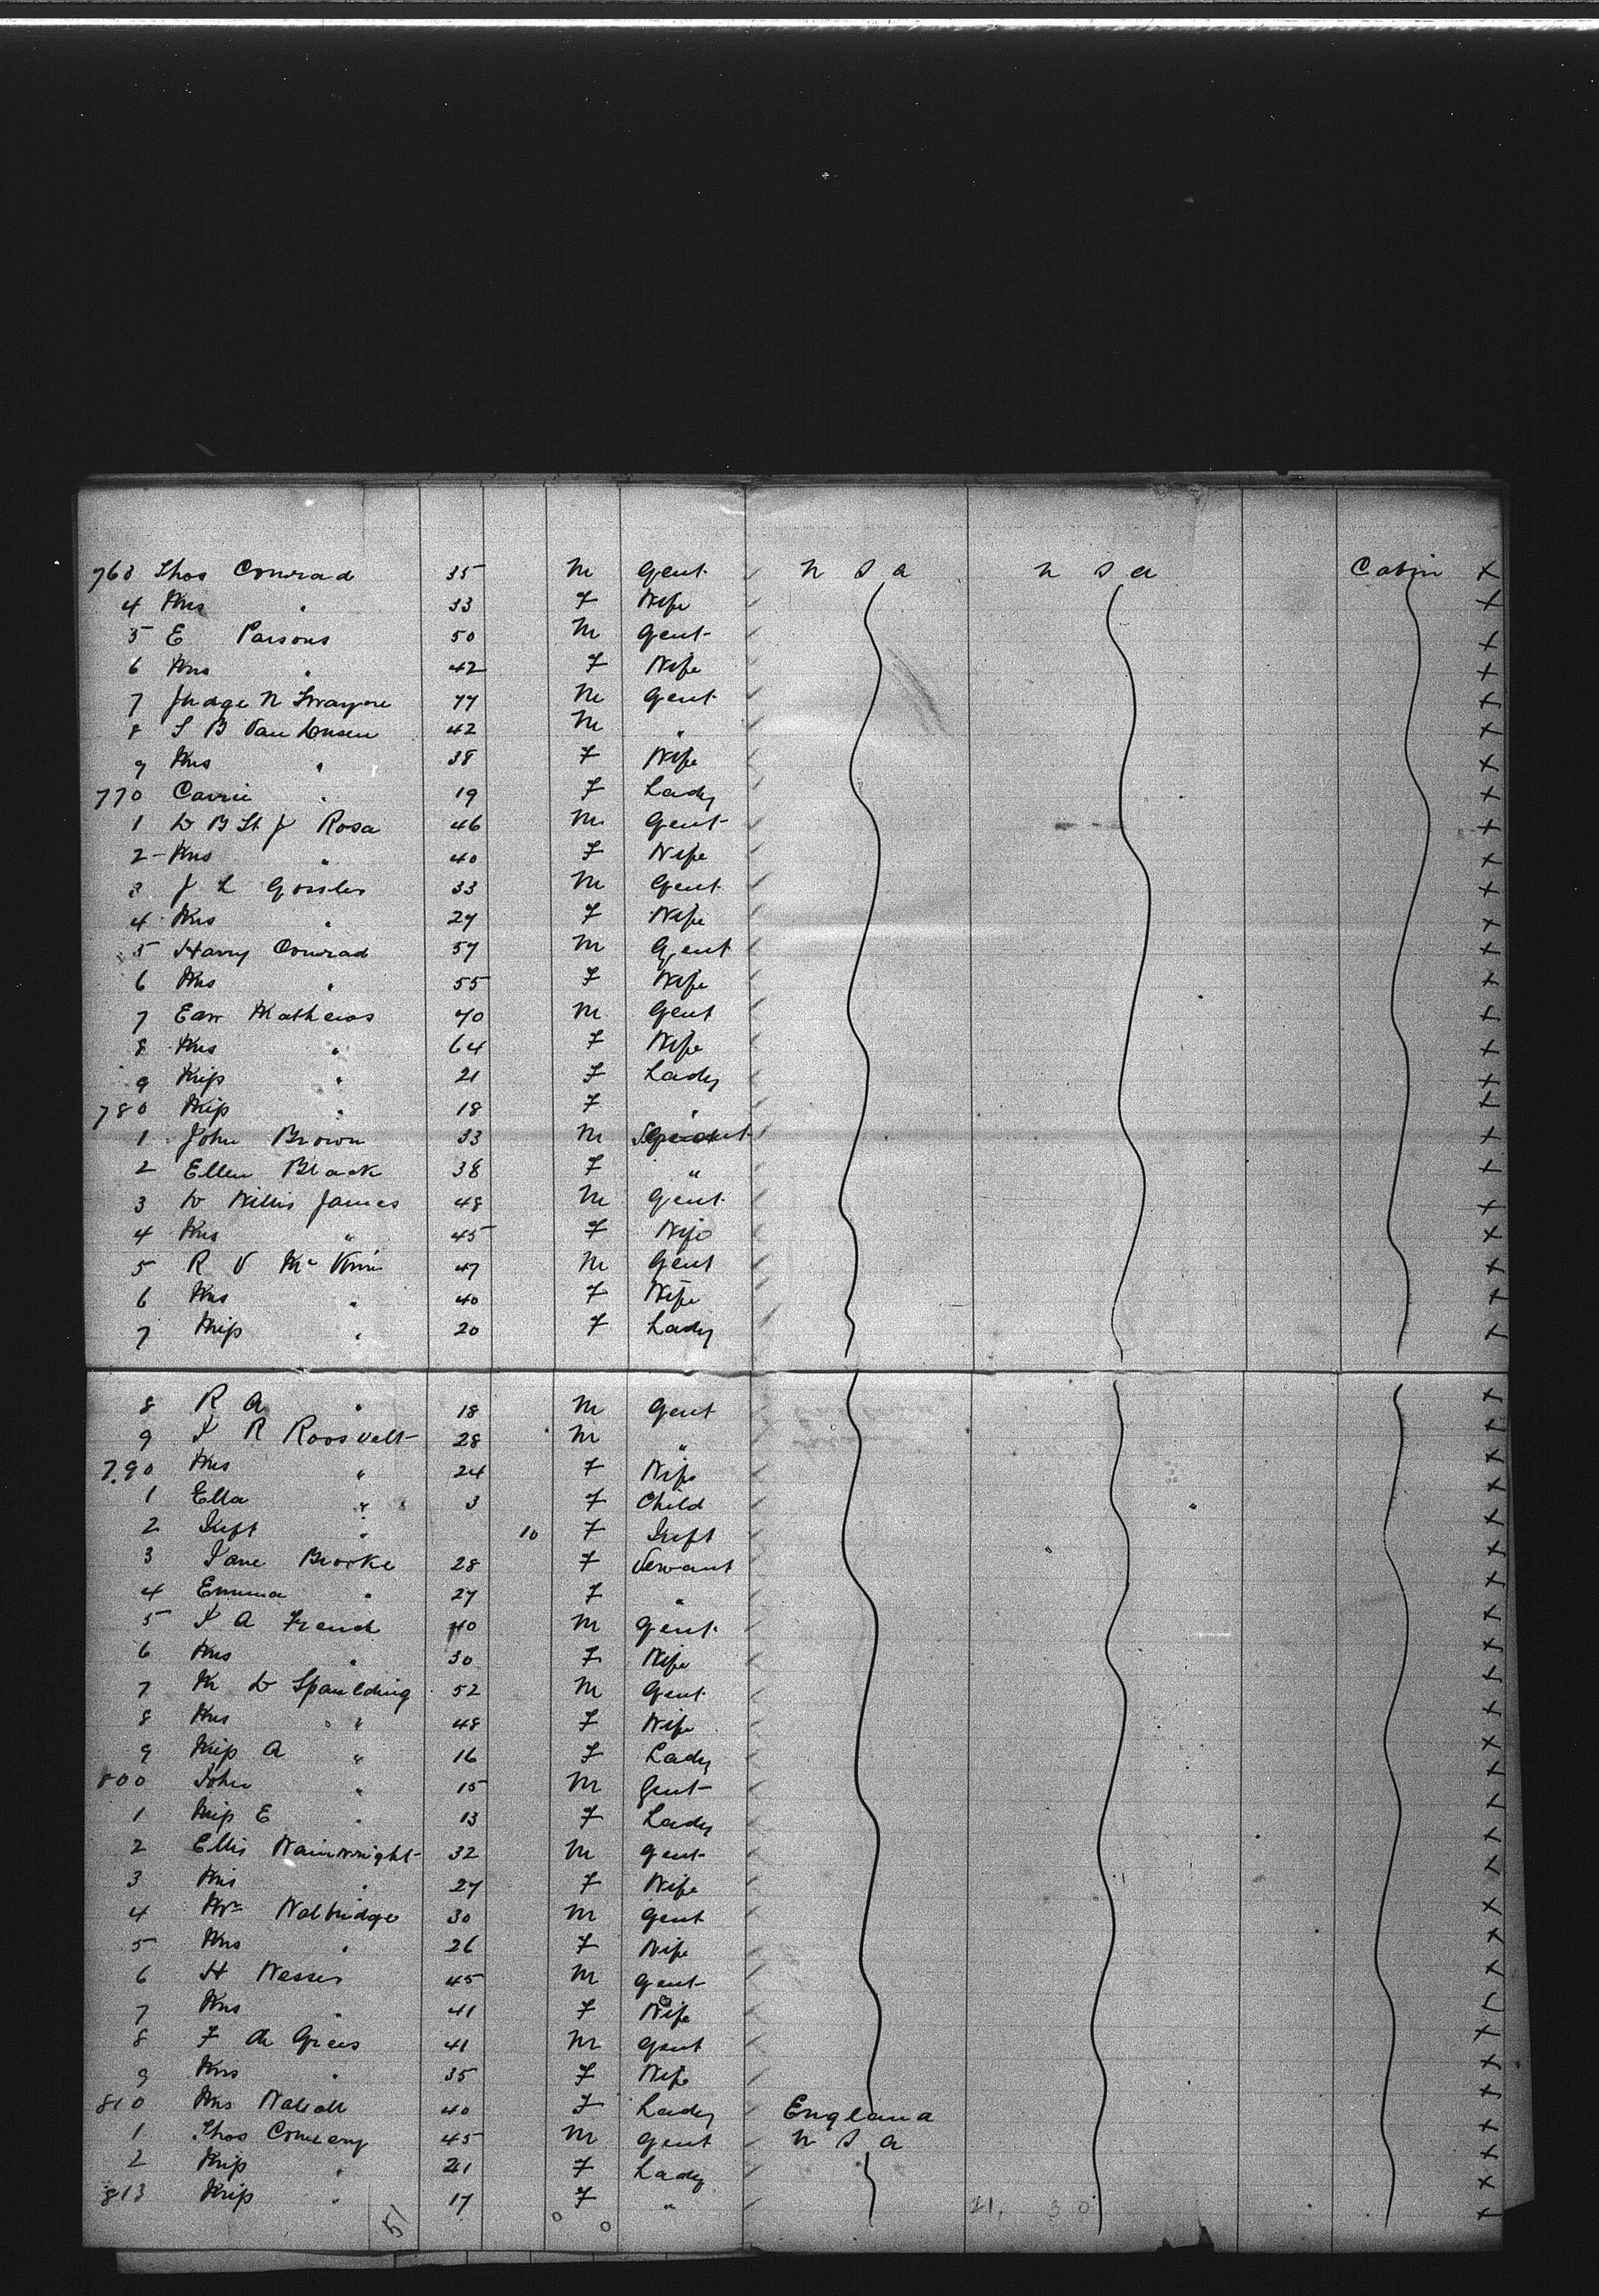 763 Thos Conrad 35 M Gent U S A U S A Cabin X
4 Mrs " 33 F Wife X
5 E Parsons 50 M Gent X
6 Mrs " 42 F Wife X
7 Judge N Swayne 77 M Gent X
8 S B Van Dusen 42 M " X
9 Mrs " 38 F Wife X
770 Carrie " 19 F Lady X
1 D B St J Rosa 46 M Gent X
2 Mrs " 40 F Wife X
3 J L Gossler 33 M Gent X
4 Mrs " 27 F Wife X
5 Harry Conrad 57 M Gent X
6 Mrs " 55 F Wife X
7 Edw Mathews 70 M Gent X
8 Mrs " 64 F Wife X
9 Miss " 21 F Lady X
780 Miss " 18 F " X
1 John Brown 33 M X
2 Ellen Black 38 F " X
3 D Willis James 48 M Gent X
4 Mrs " 45 F Wife X
5 R V Mc 47 M Gent X
6 Mrs " 40 F Wife X
7 Miss " 20 F Lady X
8 R A " 18 M Gent X
9 J R Roosvelt 28 M " X
790 Mrs " 24 F Wife X
1 Ella " 3 F Child X
2 Inft " 10 F Inft X
3 Jane Brooke 28 F Servant X
4 Emma " 27 F " X
5 J A French 40 M Gent X
6 Mrs " 30 F Wife X
7 M D Spaulding 52 M Gent X
8 Mrs " 48 F Wife X
9 Miss A " 16 F Lady X
800 John " 15 M Gent X
1 Miss E " 13 F Lady X
2 Ellis Wainwright 32 M Gent X
3 Mrs " 27 F Wife X
4 Wm Walbridge 30 M Gent X
5 Mrs " 26 F Wife X
6 H 45 M Gent X
7 Mrs " 41 F Wife X
8 F 41 M Gent X
9 Mrs " 35 F Wife X
810 Mrs 40 F Lady England X
1 Thos 45 M Gent U S A X
2 Miss " 21 F Lady X
813 Miss " 17 F " X
51